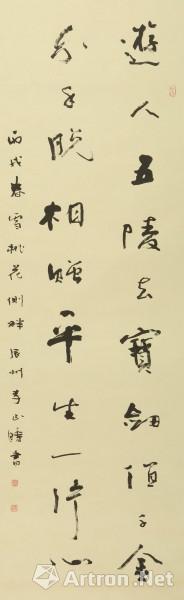 遊人五陵去寶劍值千金
分手脫相贈平生一片心
丙戌春雪桃花側畔 李 書
Artron.Net
雅昌艺术网